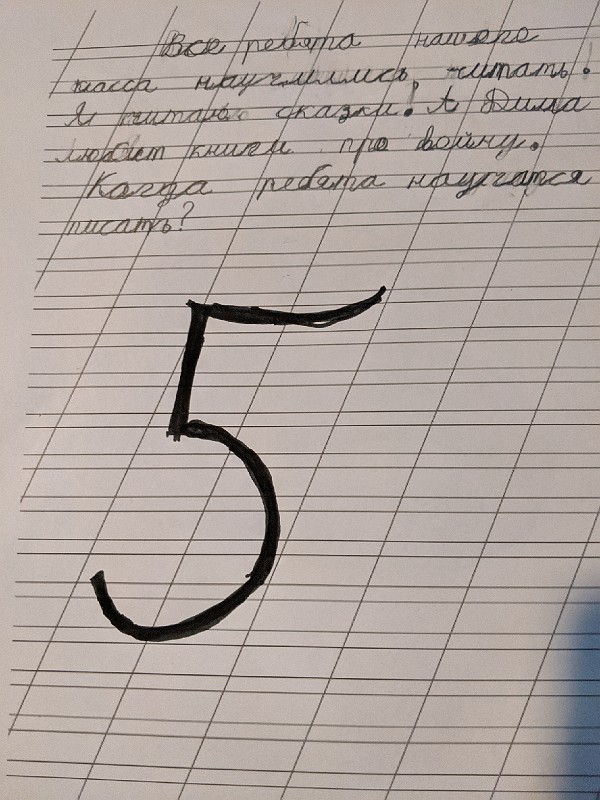 Все ребята нашего
класса научились читать!
Я читаю сказки! А Дима
любит книги про войну.
Когда ребята научатся
писать?
5